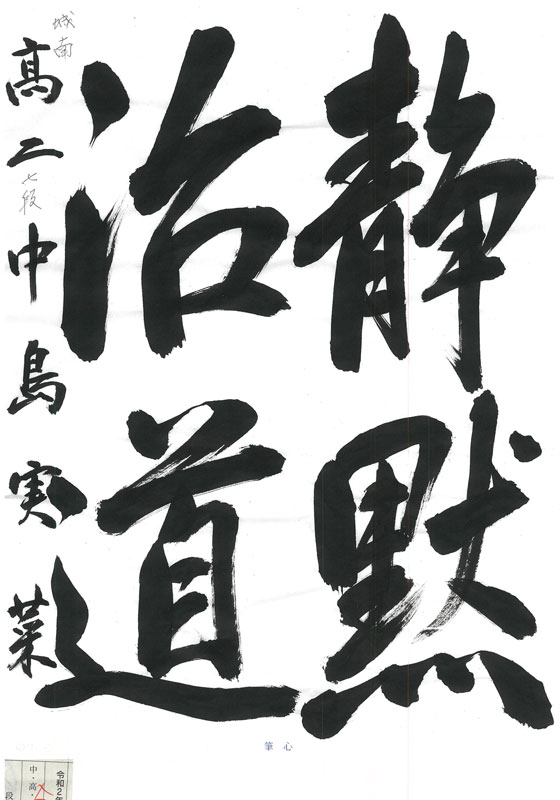 静默
治道
城南
高二 七段 中島実菜
心筆
令和2年
中・高・
段